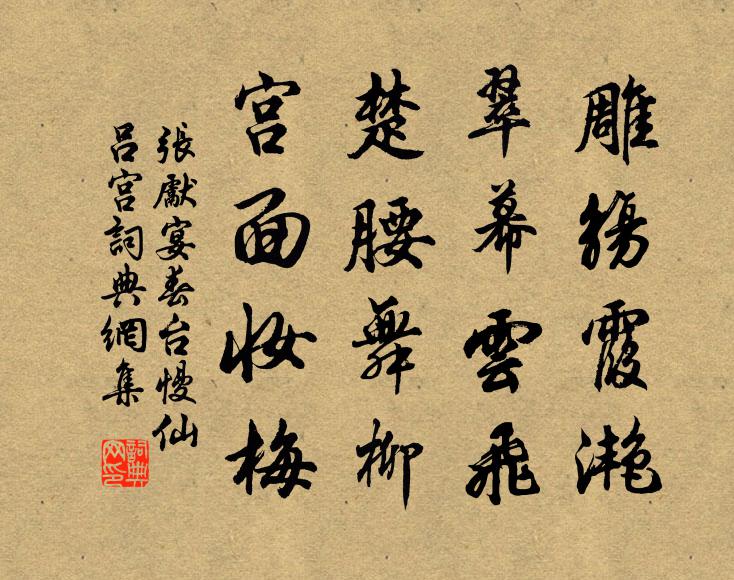 雕觴霞灩
翠幕雲飛
楚腰舞柳
宮面妝梅
張獻宴春台慢仙
呂宮詞典網集
詞典網印